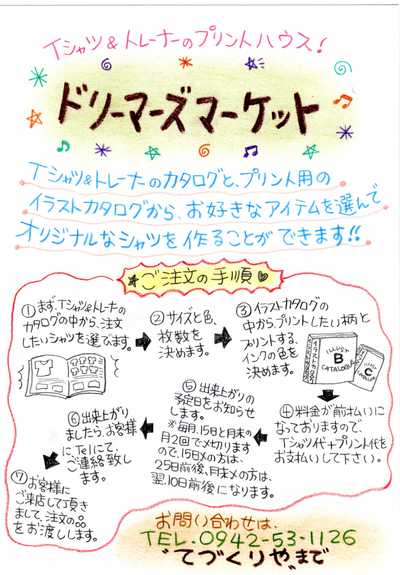 Tシャツ&トレーナーのプリントハウス!
ドリーマーズマーケット
Tシャツ&トレーナーのカタログと、プリント用の
イラストカタログから、お好きなアイテムを選んで
オリジナルなシャツを作ることができます!!
ご注文の手順
①まず、Tシャツ&トレーナの
カタログの中から、注文
したいシャツを選びます。
②サイズと色、
枚数を
決めます。
③イラストカタログの
中からプリントしたい柄と
プリントする、
インクの色を
決めます。
イラストカタログ
ILLUST
B
CATALOGUE
C
④料金が前払いに
なっておりますので、
Tシャツ代+プリント代を
お支払いして下さい。
⑤出来上がりの
予定日をお知らせ
します。
※毎月、15日と月末の
月2回で〆切ります
ので、15日〆の方は、
25日前後、月末〆の方は、
翌、10日前後になります。
⑥出来上がり
ましたら、お客様
にTelにて
ご連絡致し
ます。
⑦お客様に
ご来店して頂き
まして、注文の品
をお渡しします。
お問い合わせは、
TEL.0942-53-1126
"てづくりや"まで